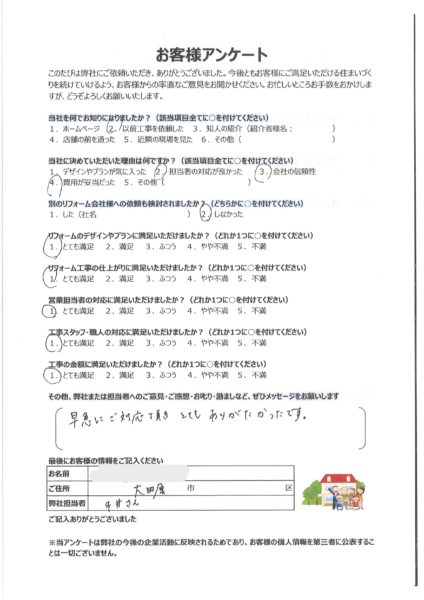 お客様アンケート
このたびは弊社にご依頼いただき、ありがとうございました。今後ともお客様にご満足いただける住まいづく
りを続けていけるよう、お客様からの率直なご意見をお聞かせください。お忙しいところお手数をおかけしま
すが、どうぞよろしくお願いいたします。
当社を何でお知りになりましたか？（該当項目全てに○を付けてください）
1．ホームページ　2．以前工事を依頼した　3．知人の紹介（紹介者様名：　　　　）
4．店舗の前を通った　5．近隣の現場を見た　6．その他（　　　　）
当社に決めていただいた理由は何ですか？（該当項目全てに○を付けてください）
1．デザインやプランが気に入った　2．担当者の対応が良かった　3．会社の信頼性
4．費用が妥当だった　5．その他（　　　　）
別のリフォーム会社様への依頼も検討されましたか？（どちらかに○を付けてください）
1．した（社名　　　　）　2．しなかった
リフォームのデザインやプランに満足いただけましたか？（どれか1つに○を付けてください）
1．とても満足　2．満足　3．ふつう　4．やや不満　5．不満
リフォーム工事の仕上がりに満足いただけましたか？（どれか1つに○を付けてください）
1．とても満足　2．満足　3．ふつう　4．やや不満　5．不満
営業担当者の対応に満足いただけましたか？（どれか1つに○を付けてください）
1．とても満足　2．満足　3．ふつう　4．やや不満　5．不満
工事スタッフ・職人の対応に満足いただけましたか？（どれか1つに○を付けてください）
1．とても満足　2．満足　3．ふつう　4．やや不満　5．不満
工事の金額に満足いただけましたか？（どれか1つに○を付けてください）
1．とても満足　2．満足　3．ふつう　4．やや不満　5．不満
その他、弊社または担当者へのご意見・ご感想・お叱り・励ましなど、ぜひメッセージをお願いします
早急にご対応頂き とても ありがたかったです。
最後にお客様の情報をご記入ください
お名前
ご住所　大田原　市　区
弊社担当者　平井さん
ご記入ありがとうございました
※当アンケートは弊社の今後の企業活動に反映されるためであり、お客様の個人情報を第三者に公表すること
は一切ございません。